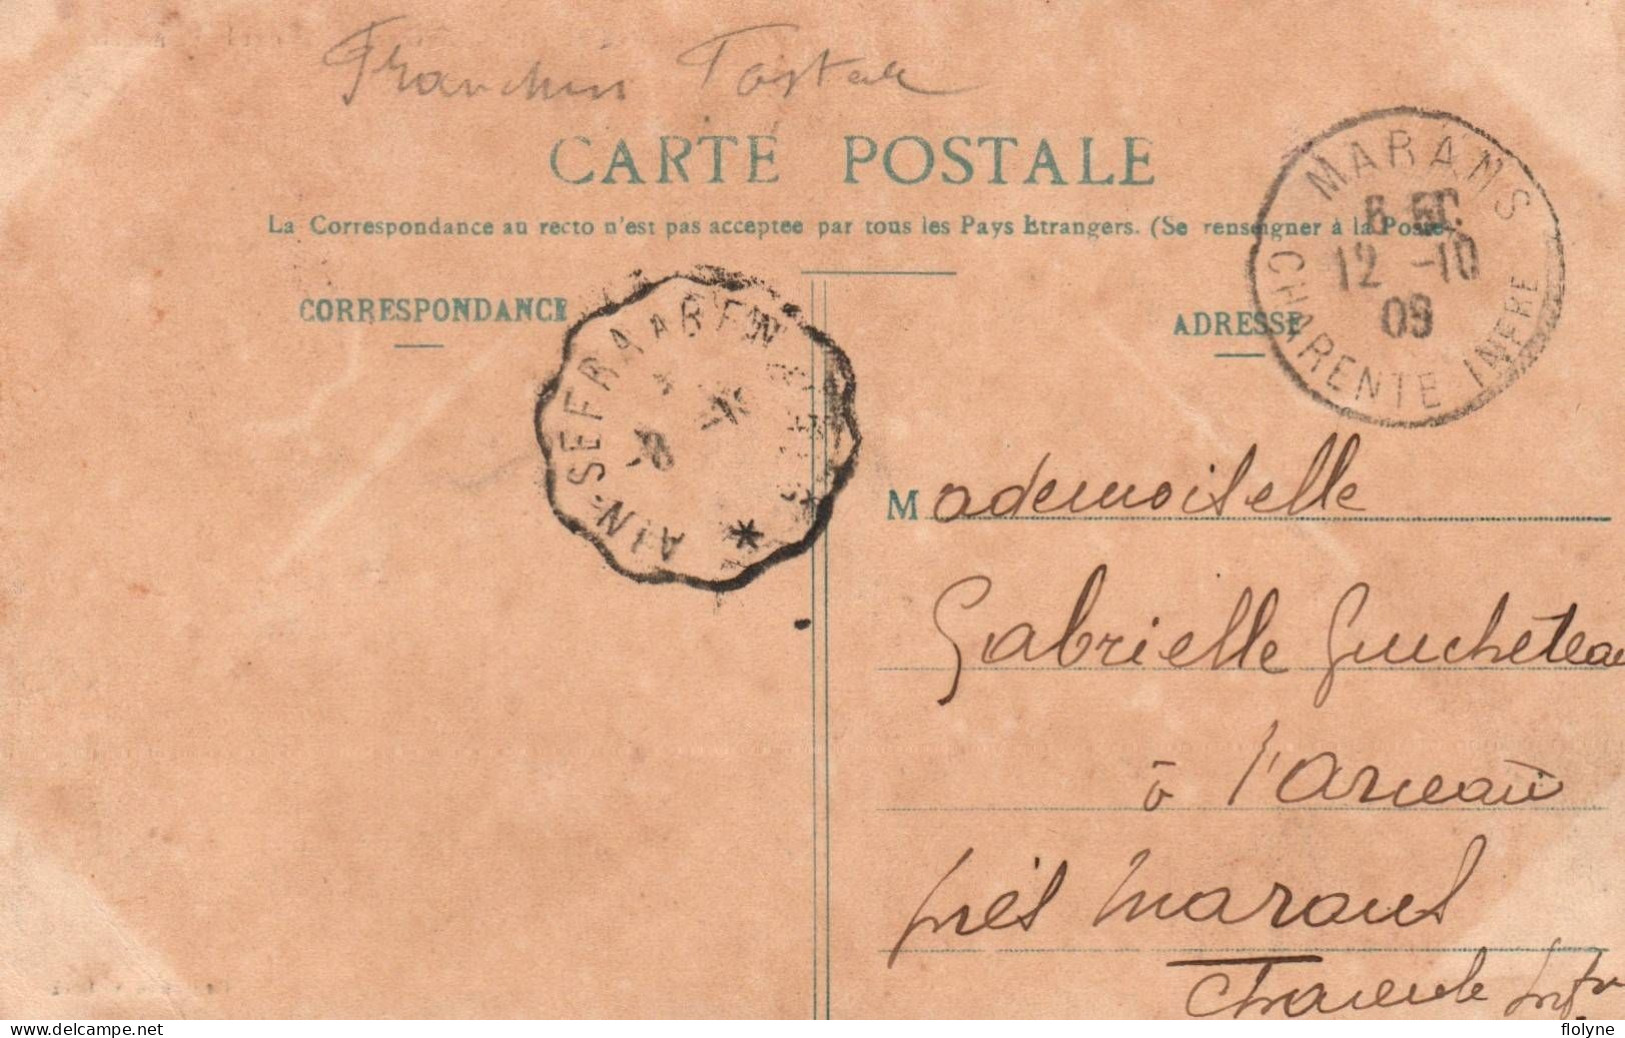 Franchise Postale
CARTE POSTALE
La Correspondance au recto n'est pas acceptee par tous les Pays Etrangers. (Se renseigner à la Poste)
CORRESPONDANCE
ADRESSE
MARANS
12 -10
09
CHARENTE INFRE
AIN-SEFRA A
-8
Mademoiselle
Gabrielle Guicheteau
à l'Arceau
près Marans
Charente Infre
delcampe.net
flolyne